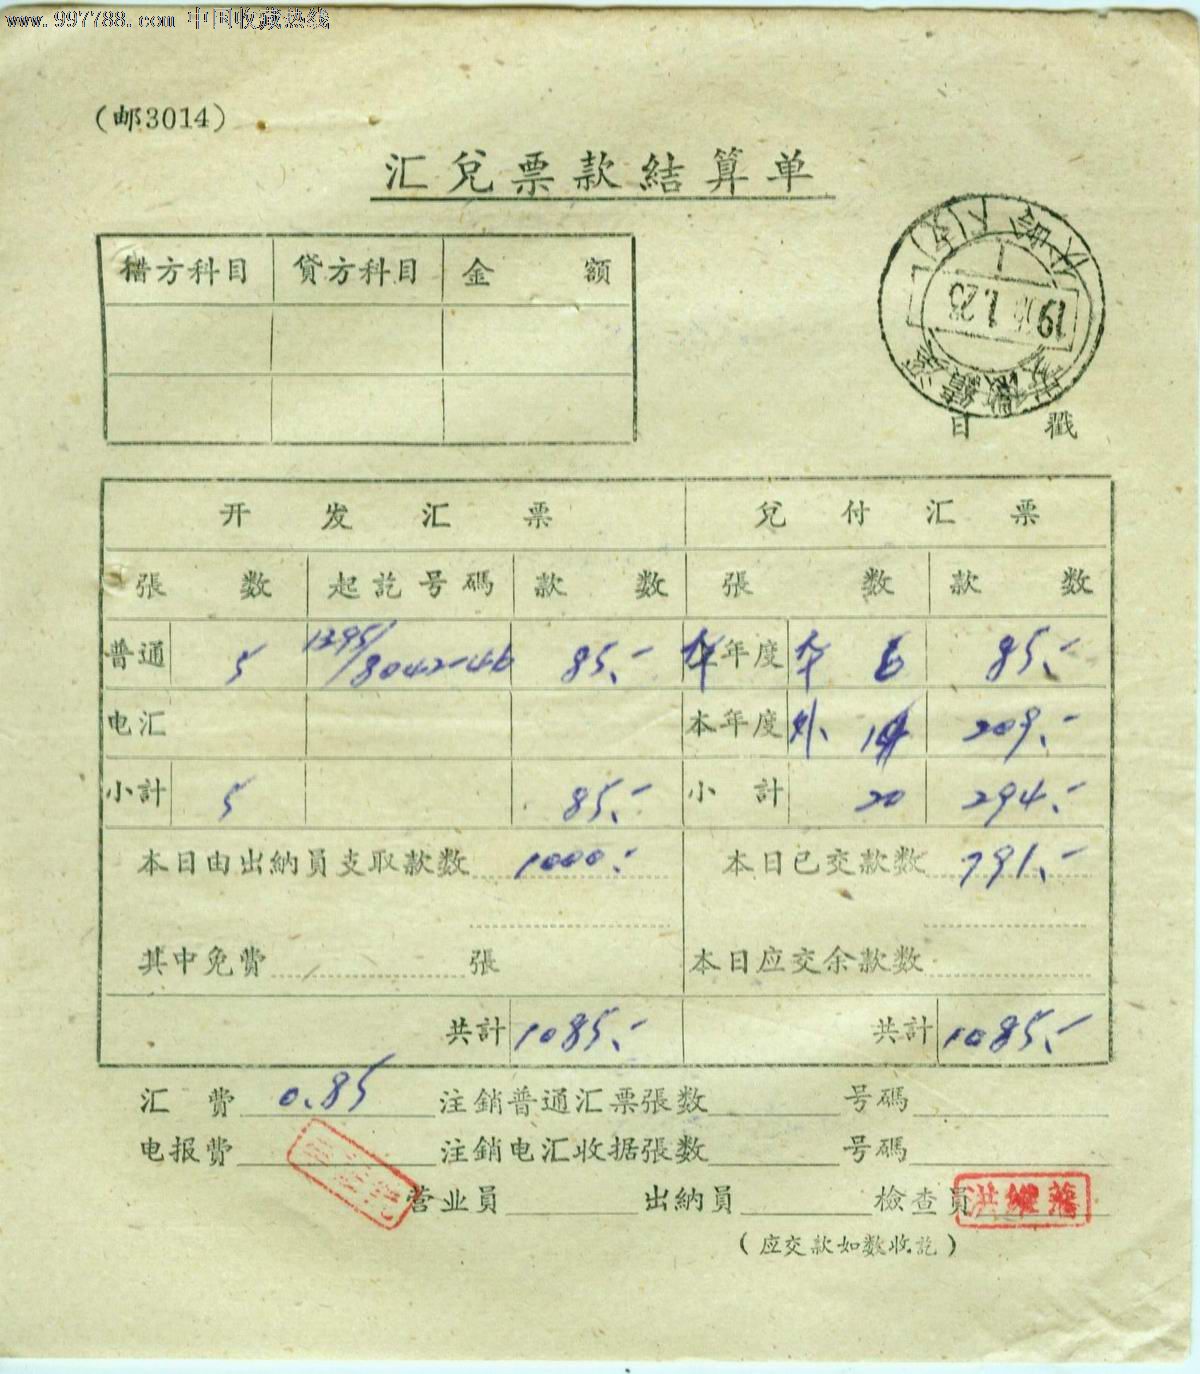 www.997788.com 中国收藏热线
(邮3014)
汇兌票款結算单
借方科目 貸方科目 金 额
安徽績溪
日 戳
开发汇票 兌付汇票
張数 起訖号碼 款数 張数 款数
普通 5 1395/8042-46 85.- 年度 6 85.-
电汇 本年度 外 209.-
小計 5 85.- 小計 20 294.-
本日由出納員支取款数 1000.- 本日已交款数 791.-
其中免費 張 本日应交余款数
共計 1085.- 共計 1085.-
汇費 0.85 注銷普通汇票張数 号碼
电报費 注銷电汇收据張数 号碼
营业員 出納員 檢查員 洪維藩
(应交款如数收訖)